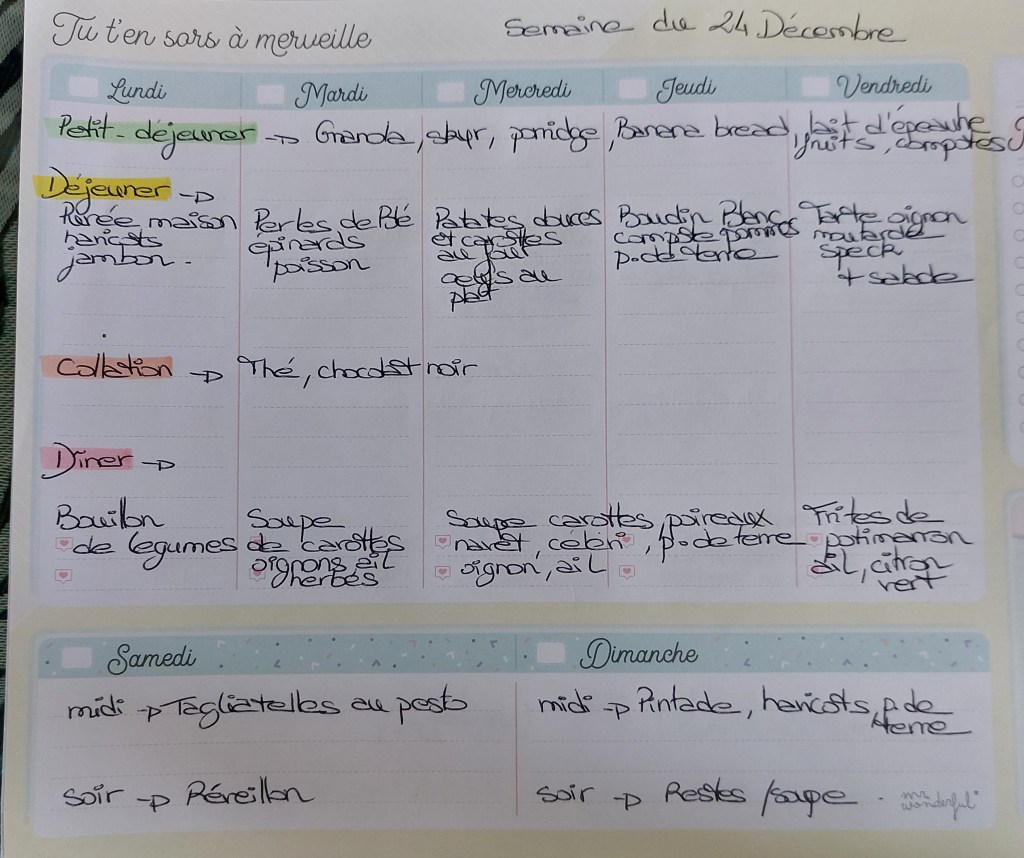 Tu t'en sors à merveille
Semaine du 24 Décembre
Lundi
Mardi
Mercredi
Jeudi
Vendredi
Petit-déjeuner → Granola, skyr, porridge, Banana bread, lait d'épeautre
fruits, compotes
Déjeuner →
Purée maison
haricots
jambon.
Perles de Blé
épinards
poisson
Patates douces
et carottes
au four
oeufs au
plat
Boudin Blanc
compote pommes
p. de terre
Tarte oignon
moutarde
speck
+ salade
Collation → Thé, chocolat noir
Dîner →
Bouillon
de legumes
Soupe
de carottes
oignons ail
herbes
Soupe carottes, poireaux
navet, céleri, p. de terre
oignon, ail
Frites de
potimarron
ail, citron
vert
Samedi
midi → Tagliatelles au pesto
soir → Réveillon
Dimanche
midi → Pintade, haricots, p. de
terre
soir → Restes /soupe.
mr.
wonderful*